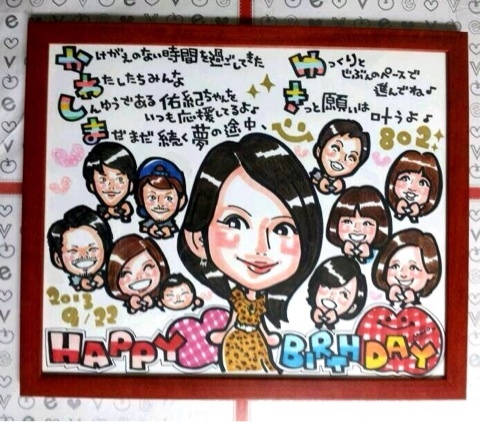 かけがえのない時間を過ごしてきた
わたしたちみんな
しんゆうである佑紀ちゃんを
いつも応援してるよ♪
まだまだ続く夢の途中
ゆっくりと
じぶんのペースで
進んでね♪
きっと願いは
叶うよ♪
802
2013
9/22
HAPPY BIRTHDAY